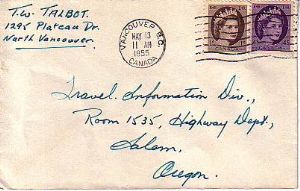 T.W. TALBOT.
1295 Plateau Dr.
North Vancouver.
VANCOUVER B.C.
MAY 13
11 AM
1955
CANADA
Travel Information Div.,
Room 1535, Highway Dept.,
Salem,
Oregon.